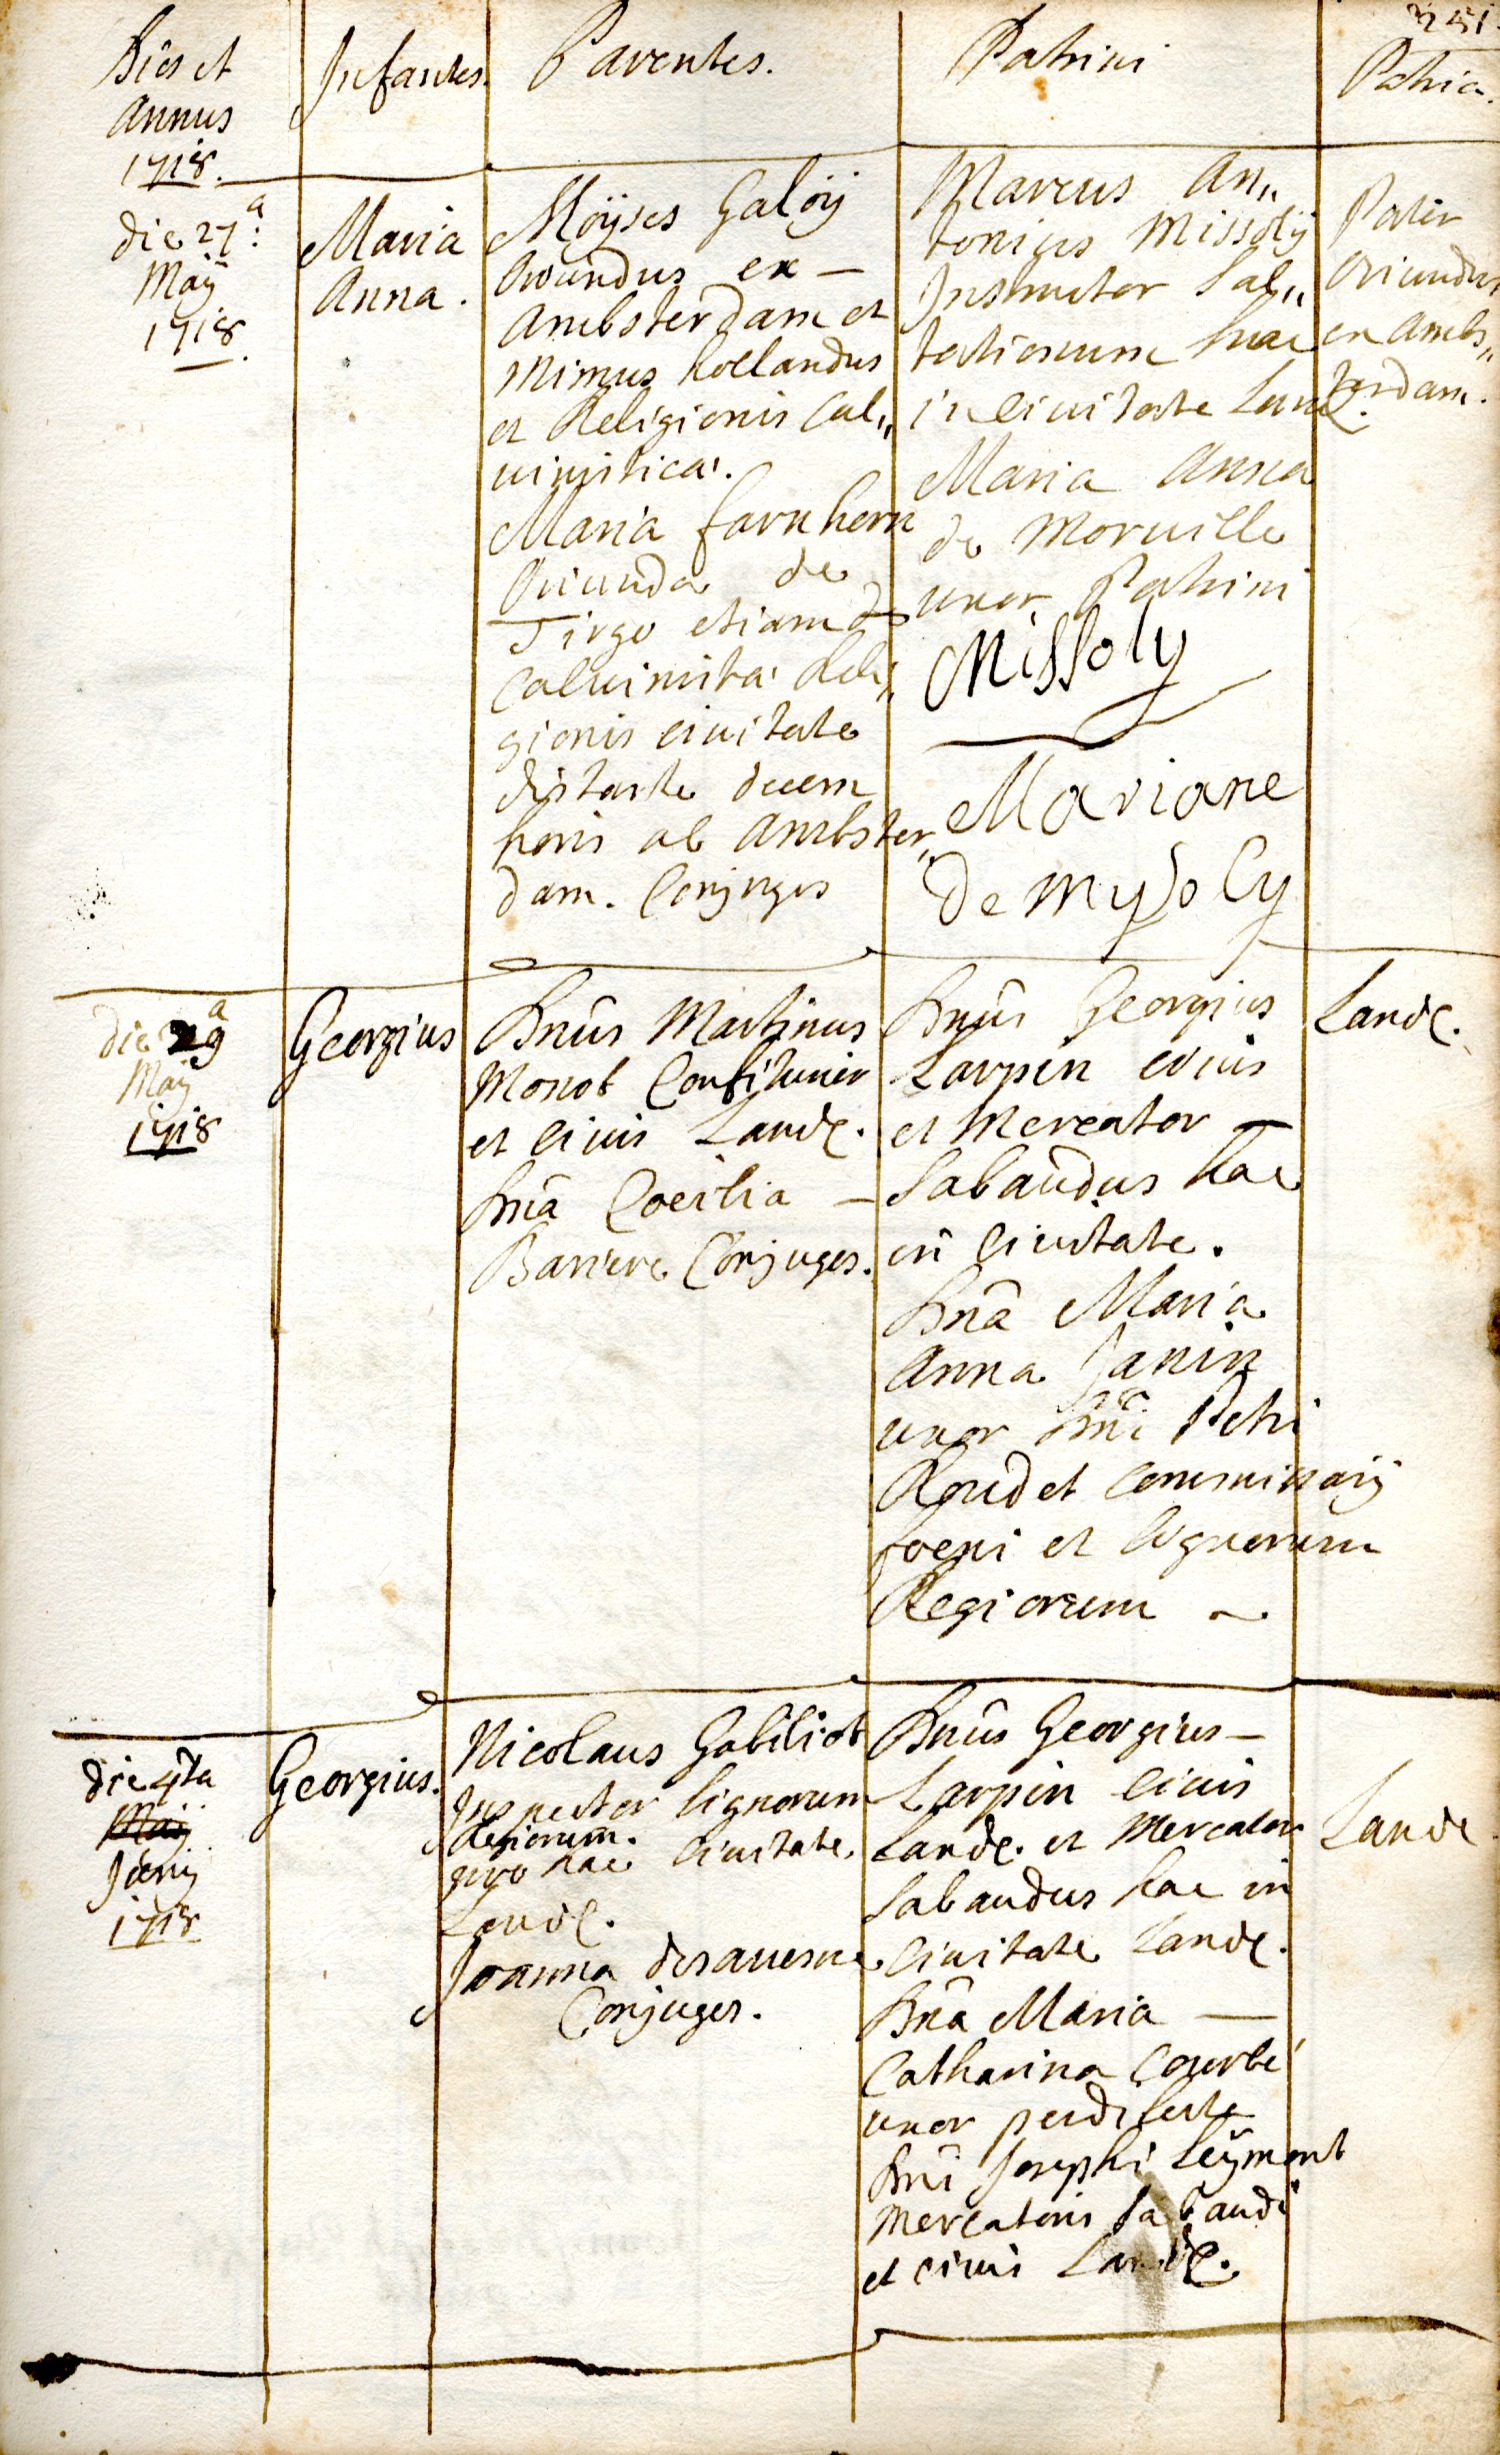 251.
Dies et
Annus
1718.
Infantes.
Parentes.
Patrini
Patria.
die 27ª:
Maÿ
1718.
Maria
Anna.
Moÿses Galoÿ
Oriundus ex —
Ambsterdam et
Mimus hollandus
et Religionis Cal„
uinistica.
Maria farnhern
Oriunda de
Tirgo etiam de
Caluinista Reli„
gionis ciuitate
distante decem
horis ab Ambster„
dam. Conjuges
Marcus An„
tonius Missolÿ
Instructor Sal„
tationum hac
in ciuitate Land.
Maria Anna
de Moruille
uxor Patrini
Missoly
Mariane
de mysoly
Pater
Oriundus
ex Ambs„
terdam.
die 29ª
Maÿ
1718
Georgius
Dnûs Martinus
Monot Confiturier
et Ciuis Landæ.
Dnâ Coecilia —
Barriere Conjuges.
Dnûs Georgius
Larpin ciuis
et Mercator —
Sabaudus hac
in Ciuitate.
Dnâ Maria
Anna Janin
uxor Dnî Petri
Roudet Commissarÿ
foeni et lignorum
Regiorum
Landæ.
die 4ta
Maÿ
Junÿ
1718
Georgius.
Nicolaus Gabiliot
Inspector lignorum
Regiorum.
pro hac Ciuitate
Landæ.
Joanna desauesne
Conjuges.
Dnûs Georgius —
Larpin Ciuis
Landæ. et Mercator
Sabaudus hac in
Ciuitate Landæ.
Dnâ Maria —
Catharina Courbé
uxor
Dnî Josephi Leÿmont
Mercatoris Sabaudi
et ciuis Landæ.
Landæ